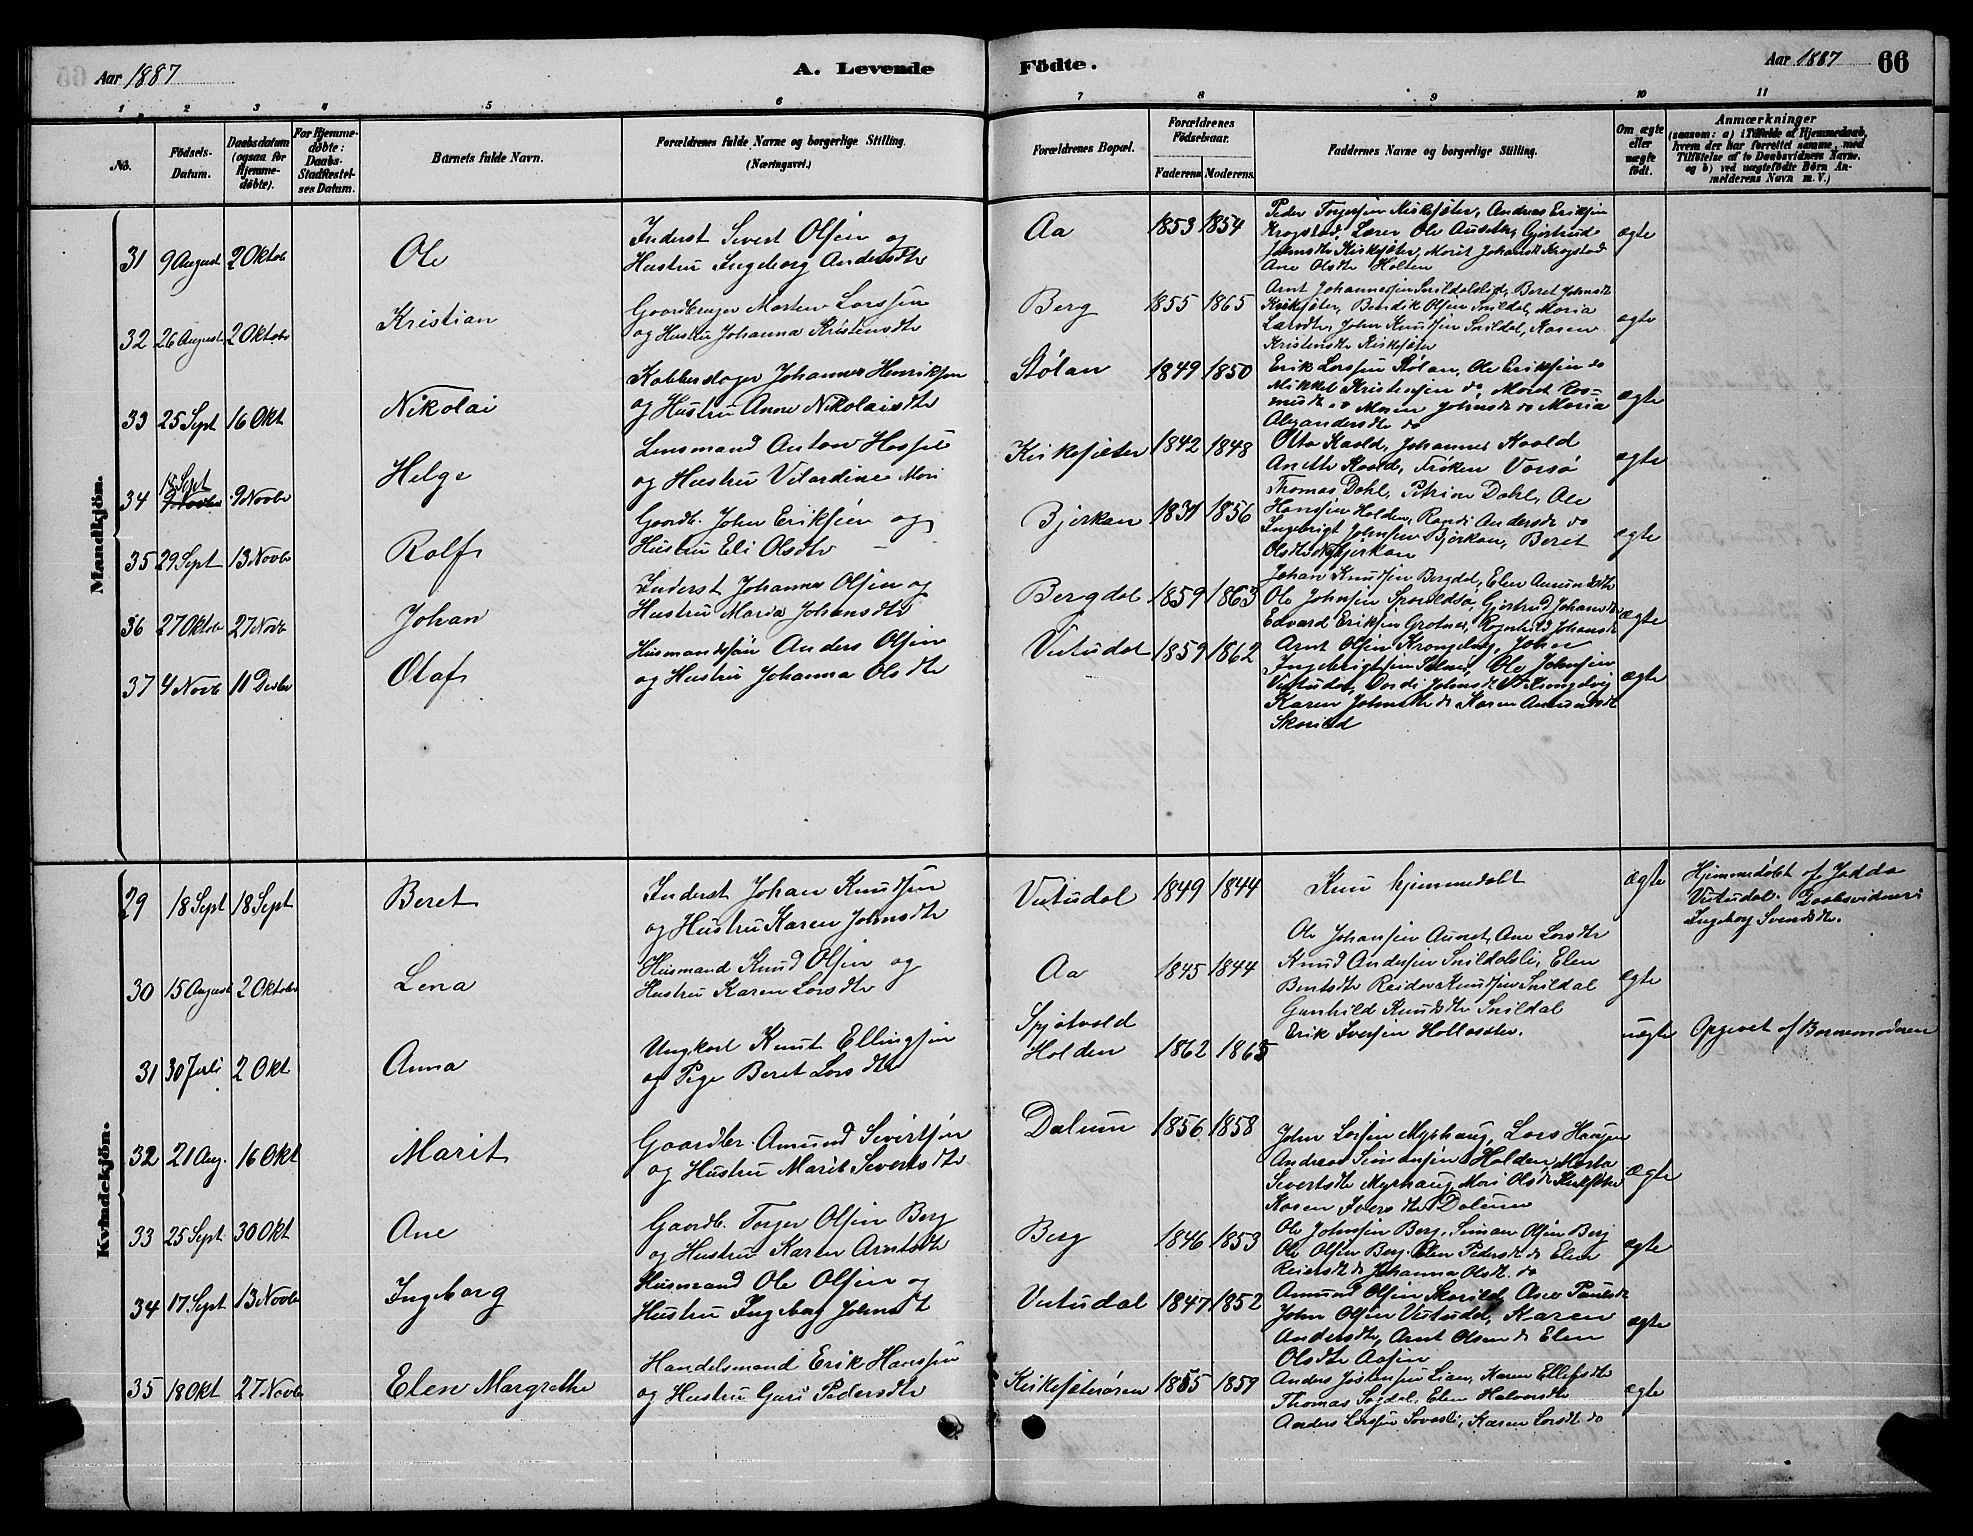 Aar 1887
A. Levende
Födte.
Aar 1887
66
1 2 3 4 5 6 7 8 9 10 11
No.
Födsels-Datum.
Daabsdatum (ogsaa for Hjemme-døbte).
For Hjemme-døbte: Daabs-Stadfæstel-ses Datum.
Barnets fulde Navn.
Forældrenes fulde Navne og borgerlige Stilling. (Næringsvei.)
Forældrenes Bopæl.
Forældrenes Födselsaar.
Faderens Moderens
Faddernes Navne og borgerlige Stilling.
Om ægte eller uægte født.
Anmærkninger
(saasom: a) i Tilfælde af Hjemmedaab, hvem der har forrettet samme, med Tilföielse af to Daabsvidners Navne. og b) ved uægtefödte Børn An-melderens Navn m. V.)
Mandkjön.
31 9 August 2 Oktob Ole
Inderst Sivert Olsen og
Hustru Ingeborg Andersdtr
Aa 1853 1854
Peder Torgersen Kirksæter, Andreas Eriksen
Krogstad, Lærer Ole Austha, Gjertrud
Johnsdtr Kirksæter, Marit Johansdt Krogstad
Ane Olsdtr Holten
ægte
32 26 August 2 Oktobr Kristian
Gaardbruger Morten Larssen
og Hustru Johanna Kristensdtr
Berg 1855 1865
Arnt Johannessen Snildalslid, Beret Johnsdt
Kirksæter, Bendik Olsen Snildal, Maria
Larsdtr, John Knudsen Snildal, Karen
Kristensdtr Kirksæter
ægte
33 25 Sept 16 Okt Nikolai
Kobberslager Johannes Henriksen
og Hustru Anne Nikolaisdtr
Stølan 1849 1850
Erik Larssen Stølan, Ole Eriksen do
Mikkel Kristensen do, Maret Ras-
musdt do Maren Johnsdt do Maria
Alexandersdtr do
ægte
34 18 Sept 9 Novbr Helge
Lensmand Anton
og Hustru
Kirksæter 1842 1848
Otto Kaald, Johannes Kaald
Anette Kaald, Frøken Vorsø
ægte
35 29 Sept 13 Novbr Rolf
Gaardb. John Eriksen og
Hustru Eli Olsdtr
Bjerkan 1831 1856
Thomas Dahl, Petrine Dahl, Ole
Hanssen Holden, Randi Andersdt do
Ingebrigt Johnsen Bjerkan, Beret
Olsdtr Bjerkan
ægte
36 27 Oktobr 27 Novb Johan
Inderst Johannes Olsen og
Hustru Maria Johansdtr
Bergdal 1859 1863
Johan Knudsen Bergdal, Elen Amundsdtr
Ole Johnsen Gjertrud Johansdt
Edvard Eriksen Grotnes, Ragnhild Johansdt
ægte
37 4 Novb 11 Decbr Olaf
Husmandssøn Anders Olsen
og Hustru Johanna Olsdtr
Vutudal 1859 1862
Arnt Olsen John
Ingebrigtsen Ole Johnsen
Vutudal, Johnsdt
Karen Johnsdtr do Karen Amundsdt
Skarild
ægte
Kvindekjön.
29 18 Sept 18 Sept Beret
Inderst Johan Knudsen
og Hustru Karen Johnsdtr
Vutudal 1849 1844
Kun hjemmedøbt
ægte
Hjemmedøbt af Jødda
Vutudal. Daabsvidner:
Ingeborg Svendsdtr.
30 15 August 2 Oktobr Lena
Husmand Knud Olsen og
Hustru Karen Larsdtr
Aa 1845 1844
Ole Johansen Aunet, Ane Larsdtr
Knud Andersen Snildalsli, Elen
Berntsdtr Reidar Knudsen Snildal
Gunhild Knudsdtr Snildal
ægte
31 30 Juli 2 Okt Anna
Ungkarl Knut Ellingsen
og Pige Beret Larsdtr
Spjøtvold
Holden 1862 1865
Erik Iversen Hollasæter.
uægte
Opgivet af Barnemoderen
32 21 Aug. 16 Okt Marit
Gaardbr. Amund Sivertsen
og Hustru Marit Sivertsdtr
Dalum 1856 1858
John Larsen Myrhaug, Lars Hansen
Andreas Simonsen Holden, Marta
Sivertsdtr Myrhaug, Mari Olsdtr Kirksæter
Karen Iversdtr Dalum
ægte
33 25 Sept. 30 Okt Ane
Gaardb. Torger Olsen Berg
og Hustru Karen Arntsdtr
Berg 1846 1853
Ole Johnsen Berg, Simon Olsen Berg
Ole Olsen Berg. Elen Pedersdt do Elen
Reiersdt do Johanna Olsdt. do
ægte
34 17 Sept 13 Novbr Ingeborg
Husmand Ole Olsen og
Hustru Ingeborg Johnsdt
Vutudal 1847 1852
Amund Olsen Skarild, Paulsdt
John Olsen Vutudal, Karen
Andersdtr, Arnt Olsen do Elen
Olsdtr Aasen
ægte
35 18 Okt 27 Novbr Elen Margrethe
Handelsmand Erik Hanssen
og Hustru Guri Pedersdtr
Kirksæterøren 1855 1859
Anders Jostensen Lian, Karen Ellefsdtr
Thomas Sødal, Elen Halvorsdtr
Anders Larsen Sovasli, Karen Larsdtr do
ægte